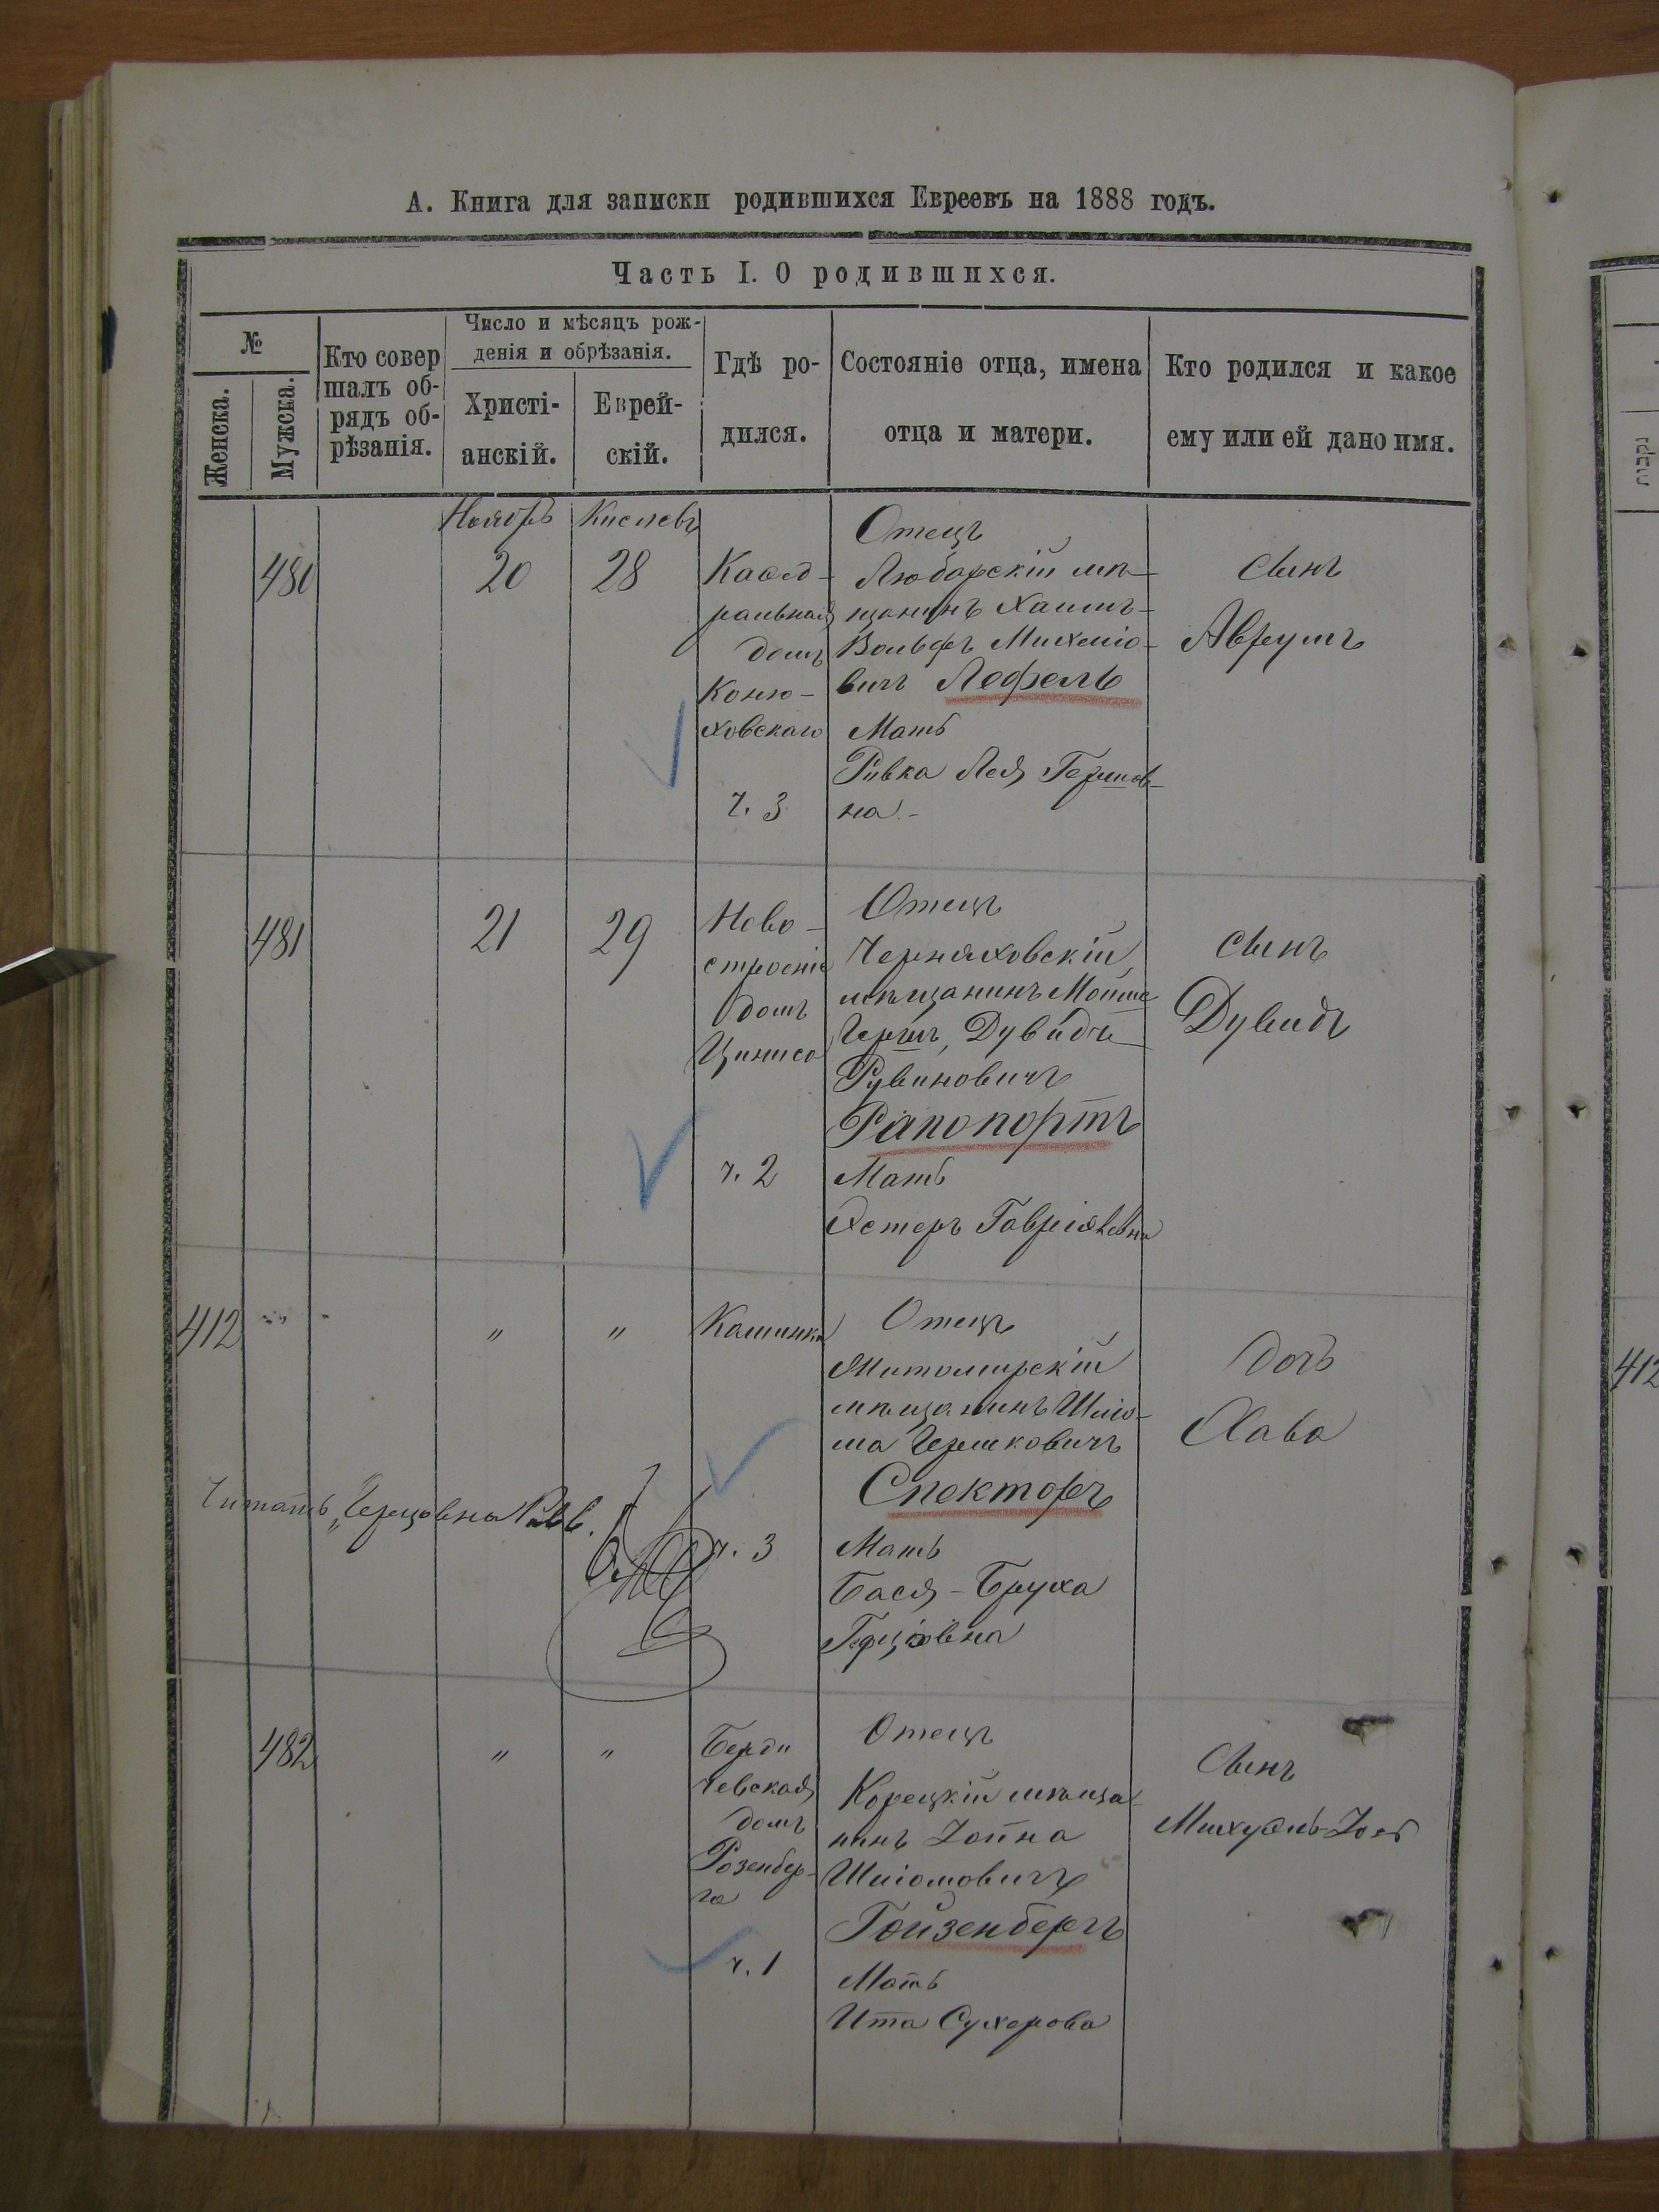 А. Книга для записки родившихся Евреевъ на 1888 годъ.
Часть I. О родившихся.
№
Женска.
Мужска.
Кто совер
шалъ об-
рядъ об-
рѣзанія.
Число и мѣсяцъ рож-
денія и обрѣзанія.
Христі-
анскій.
Еврей-
скій.
Гдѣ ро-
дился.
Состояніе отца, имена
отца и матери.
Кто родился и какое
ему или ей дано имя.
Ноябрь
Кислевъ
480
20
28
Каѳед-
ральная
домъ
Коню-
ховскаго
ч. 3
Отецъ
Любарскій мѣ-
щанинъ Хаимъ-
Вольфъ Михеліо-
вичъ Лефель
Мать
Ривка Лея Гершов-
на.-
Сынъ
Аврумъ
481
21
29
Ново-
строеніе
домъ
ч. 2
Отецъ
Черняховскій
мѣщанинъ Мошие
Герш, Дувидъ
Рувиновичъ
Рапопортъ
Мать
Эстеръ Гавріэлевна
сынъ
Дувидъ
412
"
"
Каминка
ч. 3
Отецъ
Житомирскій
мѣщанинъ Шліо-
ма Гершковичъ
Спекторъ
Мать
Бася-Бруха
Герцовна
дочь
Хава
Читать „Герцовна
482
"
"
Берди
чевская
домъ
Розенбер-
га
ч. 1
Отецъ
Корецкій мѣща-
нинъ Іойна
Шліомовичъ
Гойзенбергъ
Мать
Ита Сухерова
Сынъ
Михуэль-
412